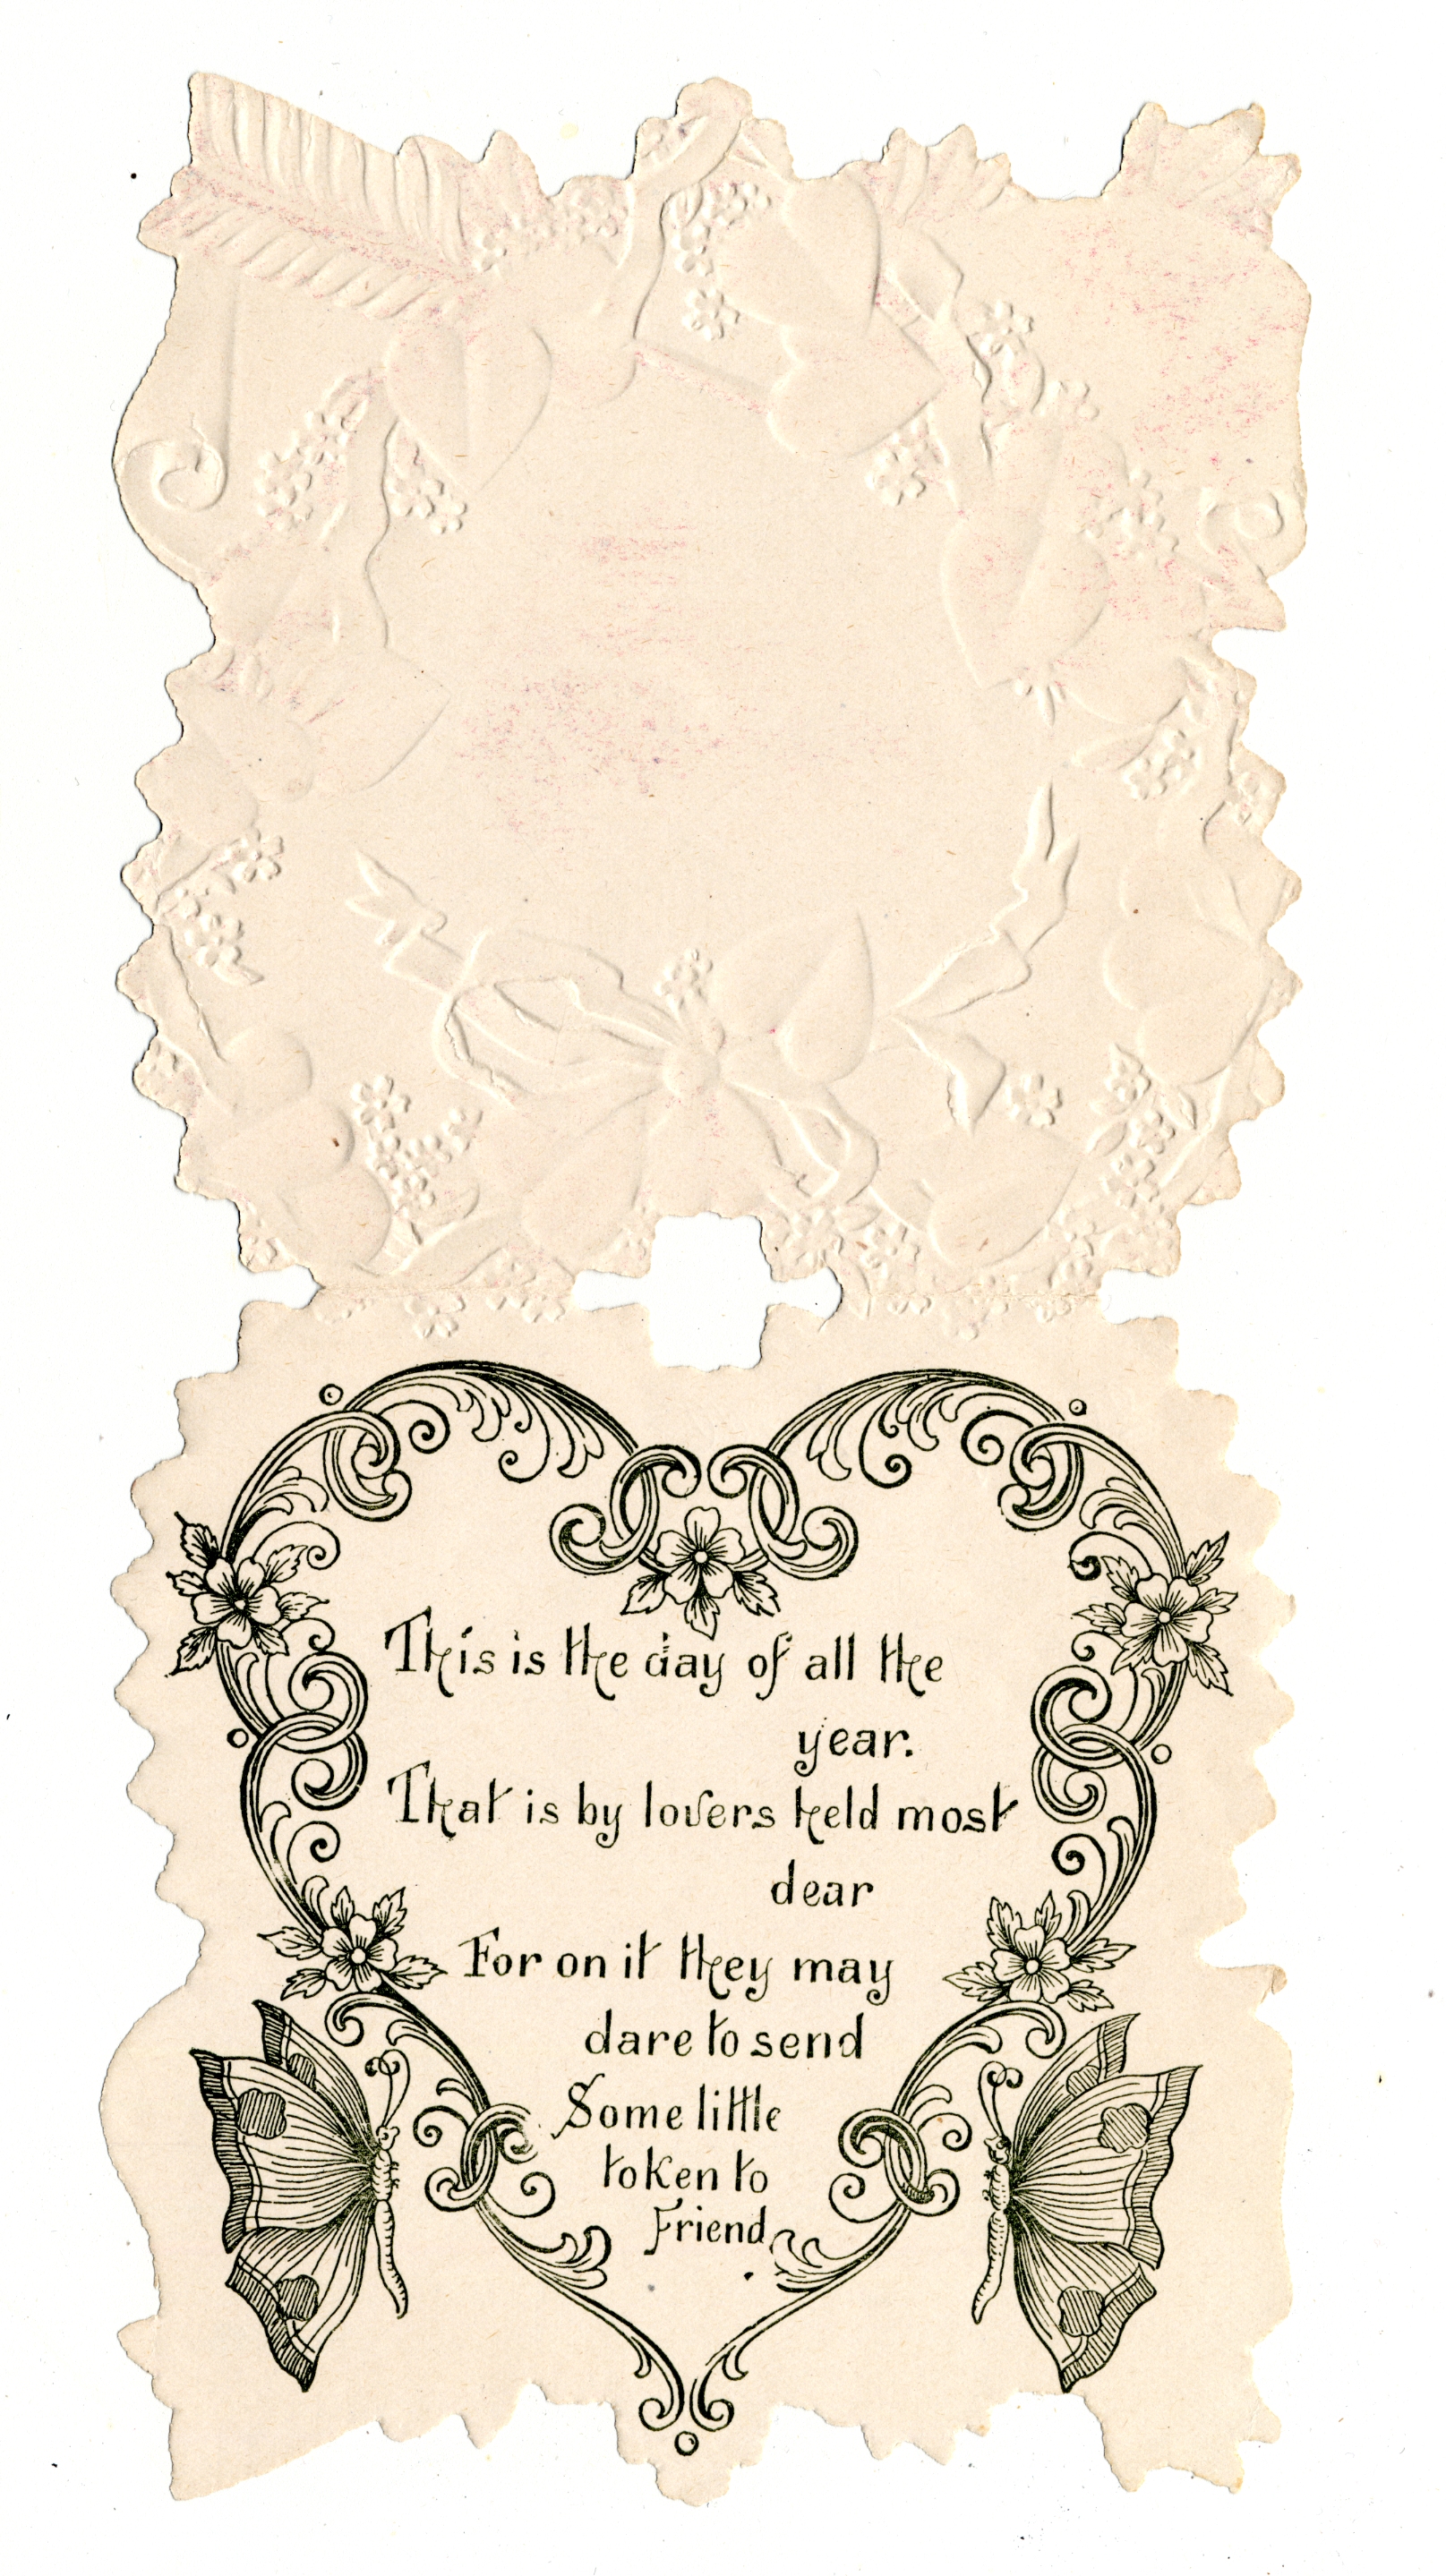 This is the day of all the
year.
That is by lovers held most
dear
For on it they may
dare to send
Some little
token to
Friend.